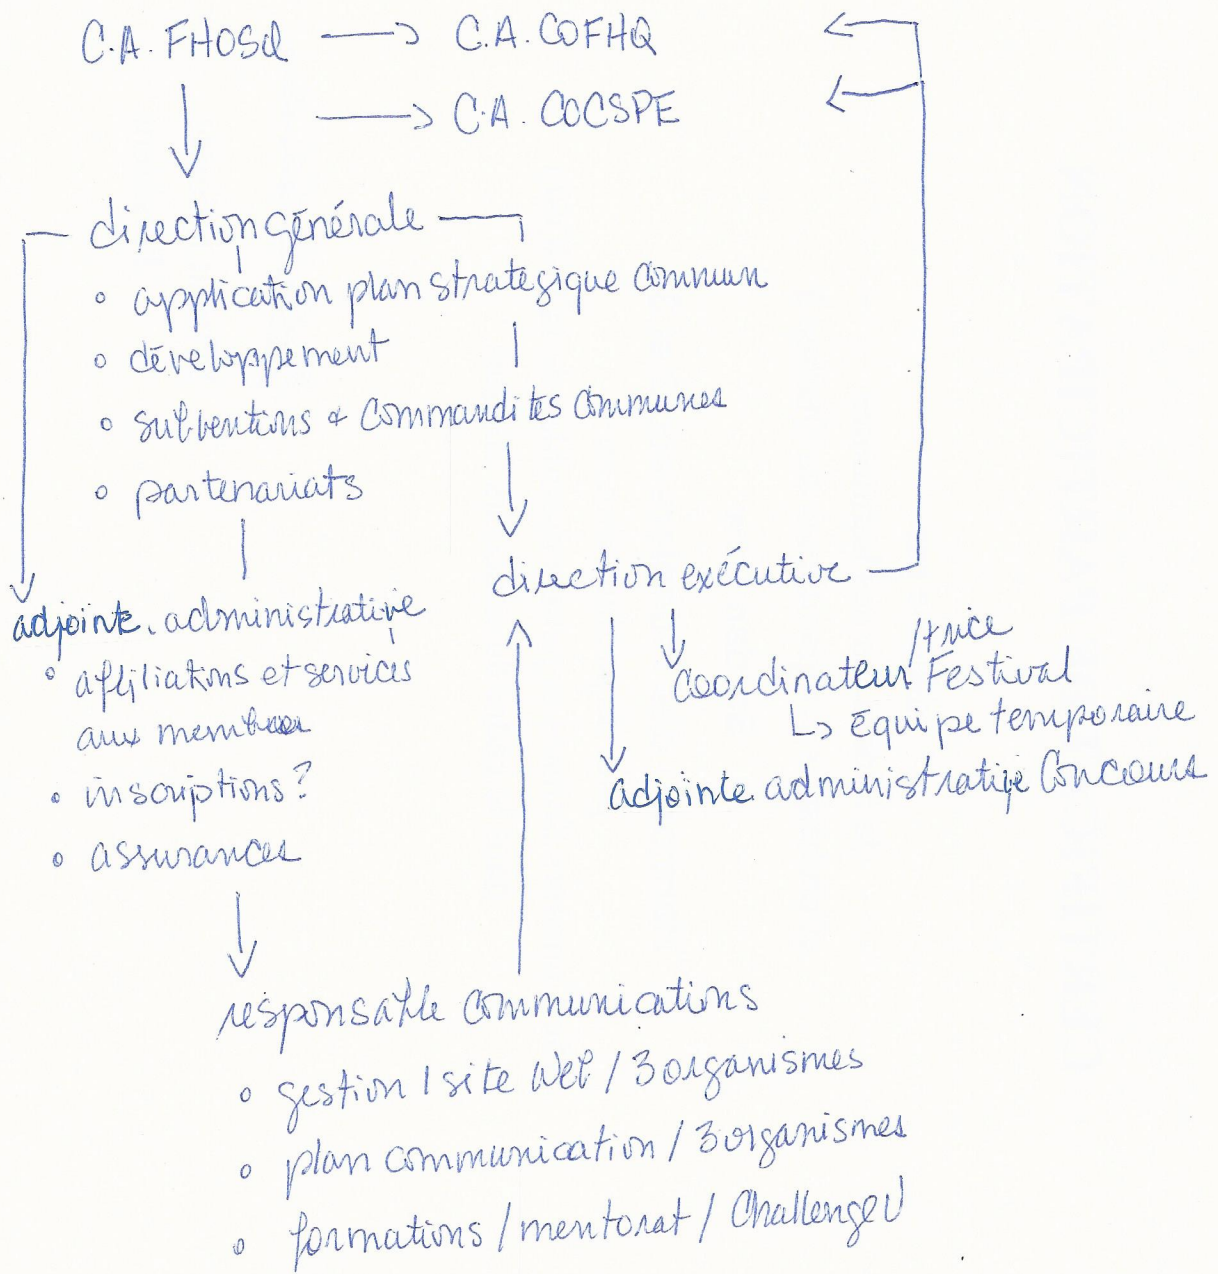 C.A. FHOSQ → C.A. COFHQ
→ C.A. COCSPE
direction générale
• application plan stratégique commun
• développement
• subventions & commandites communes
• partenariats
direction exécutive
adjointe administrative
• affiliations et services
aux membres
• inscriptions?
• assurances
Coordinateur/trice Festival
↳ équipe temporaire
adjointe administrative Concours
responsable communications
• gestion 1 site Web / 3 organismes
• plan communication / 3 organismes
• formations / mentorat / Challenge U